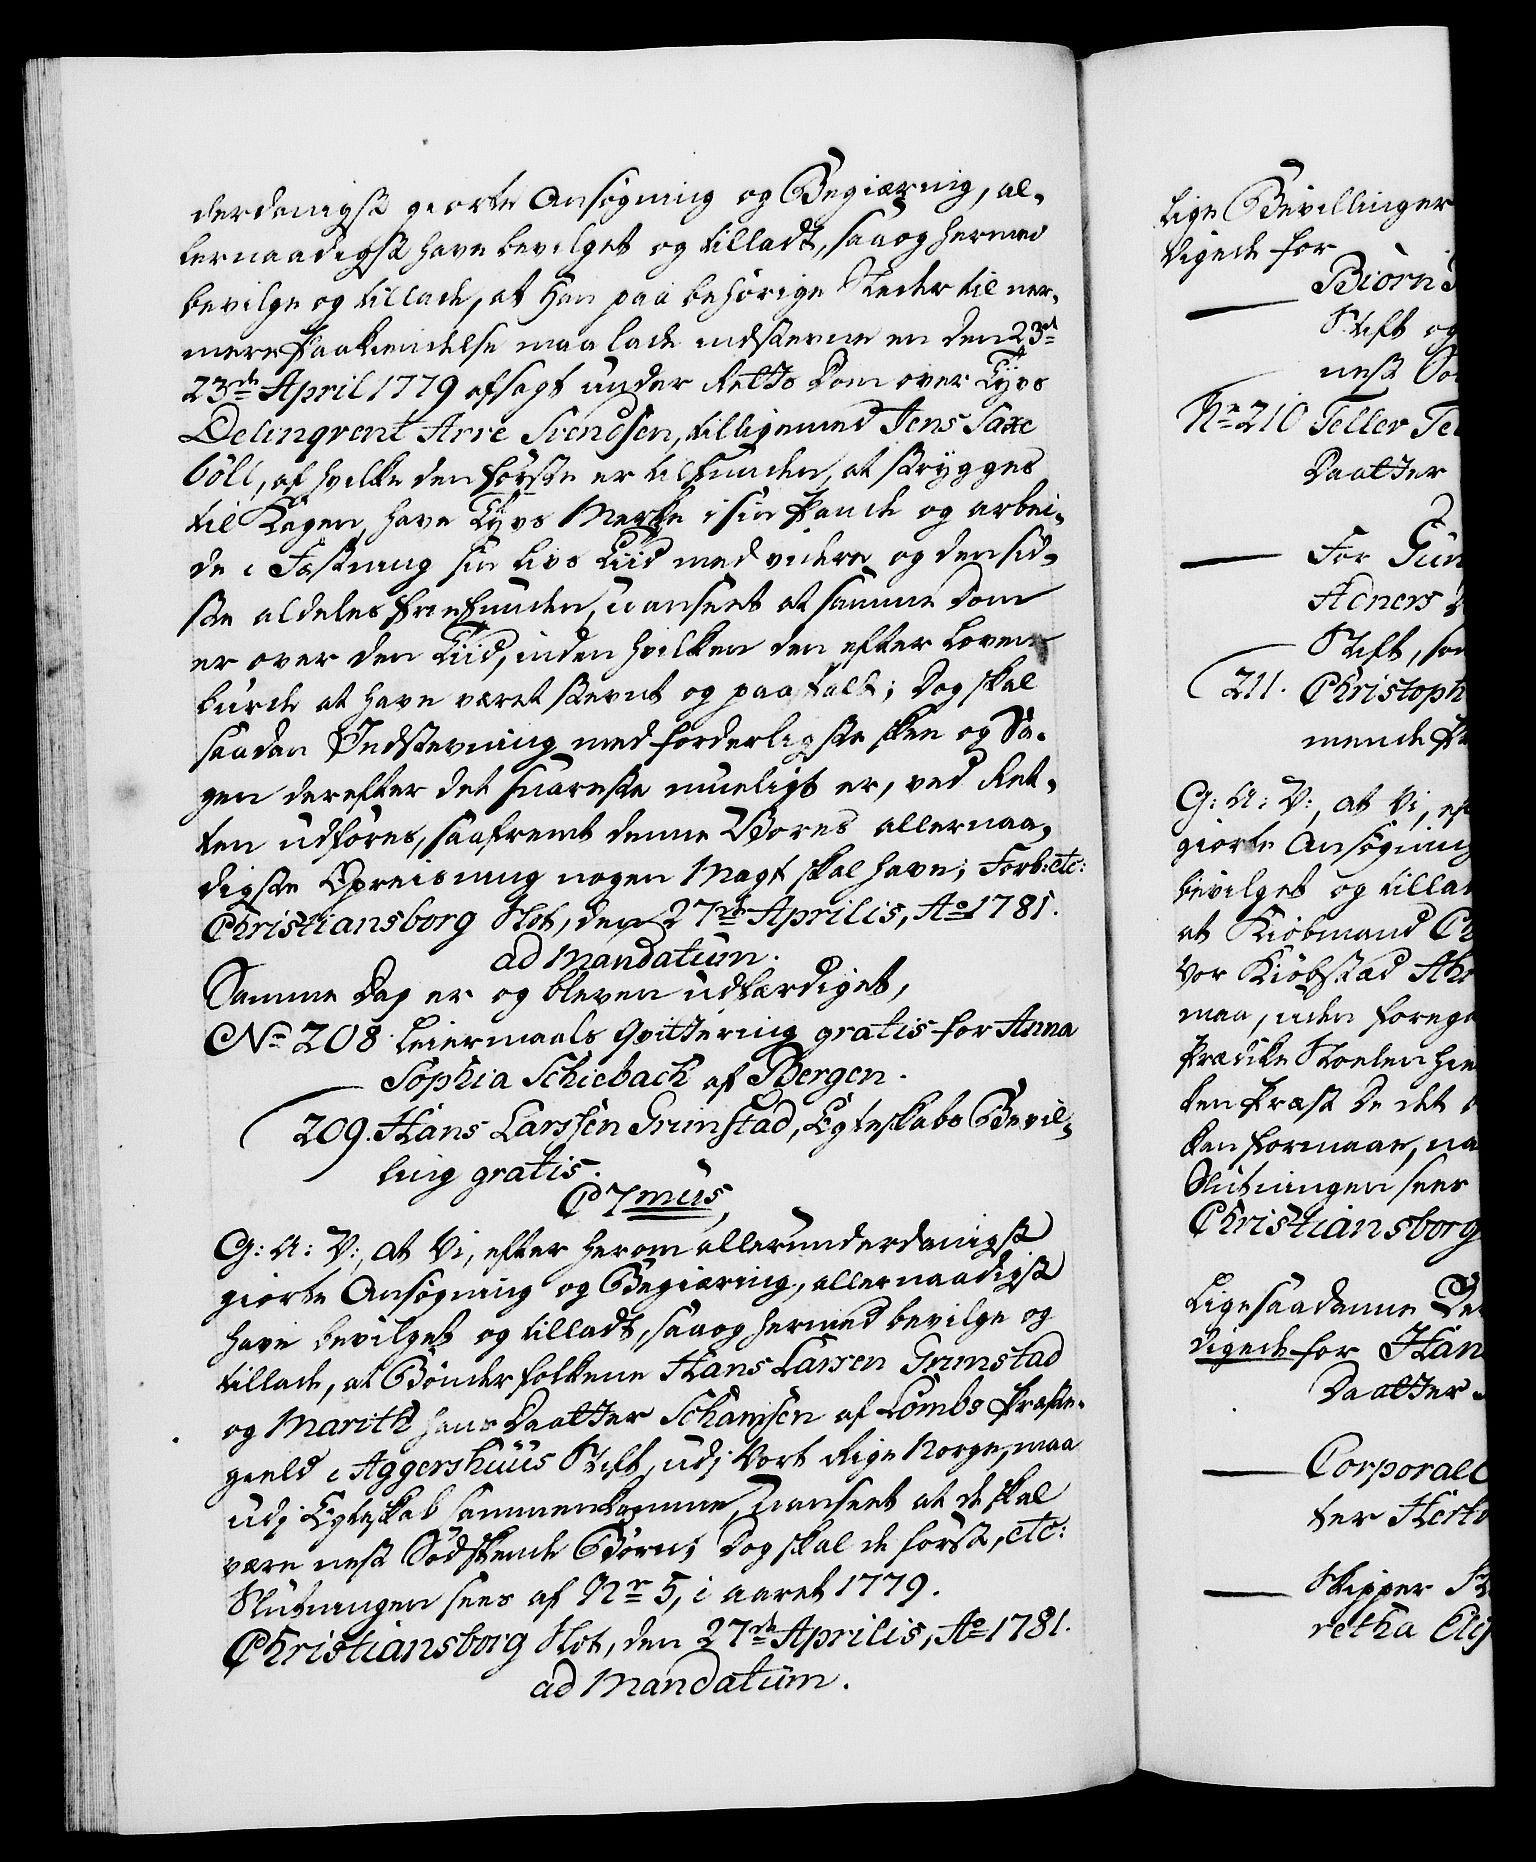 derdanigst giorte Ansøgning og Begiæring, al-
lernaadigst have bevilget og tilladt, saa og hermed
bevilge og tillade, at han paa behørige Steder til ner-
mere Paakiendelse maa lade indstevne en den 23de
23de April 1779 afsagt under Retts Dom over Tyvs
Delinqvent Arre Svendsen, tilligemed Jens Saxe
böll, af hvilke den første er tilfunden, at strygges
til Kagen, have Tyvs Merke i sin Pande og arbei-
de i Fæstning sin Livs Tiid med videre og den sid-
ste aldeles friefunden, uanseet at samme Dom
er over den Tiid, inden hvilken den efter Loven
burde at have været stevnt og paatalt; Dog skal
saadan Indstevning med forderligste skee og Sa-
gen derefter det snareste mueligt er, ved Ret-
ten udføres, saafremt denne Vores allernaa-
digste Opreisning nogen Magt skal have; Forb: etc:
Christiansborg Slot, den 27de Aprilis, Ao 1781.
ad Mandatum.
Samme Dag er og bleven udfærdiget,
No 208 Leiermaals Qvittering gratis for Anna
Sophia Schiebach af Bergen.
209. Hans Larssen Grimstad, Egteskabs Bevil-
ling gratis.
C 7mus,
G: A: V:, at Vi, efter herom allerunderdanigst
giorte Ansøgning og Begiæring, allernaadigst
have bevilget og tilladt, saa og hermed bevilge og
tillade, at Bønderfolkene Hans Larsen Grimstad
og Marith hans Daatter Schamsen af Lombs Præste-
gield i Aggershuus Stift, udj Vort Rige Norge, maa
udj Egteskab sammenkomme, uanseet at de skal
være nest Sødskende Børn; Dog skal de først, etc:
Slutningen sees af Nr 5, i aaret 1779.
Christiansborg Slot, den 27de Aprilis, Ao 1781.
ad Mandatum.
lige Bevillinger
digede for
Biörn
Stift og
nest Sø
No 210 Teller Te
Daatter
For Gun
Stift, som
211. Christoph
mende Pr
G: A: V:, at Vi, ef
giorte Ansøgning
bevilget og tillad
at Kiøbmand Ch
Vor Kiøbstad
maa, uden forega
Prædike Stoelen
den Præst De det
kan formaae, na
Slutningen sees
Christiansborg
Ligesaadanne
digede for Han
Daatter
Corporal
ter
Skipper
retha